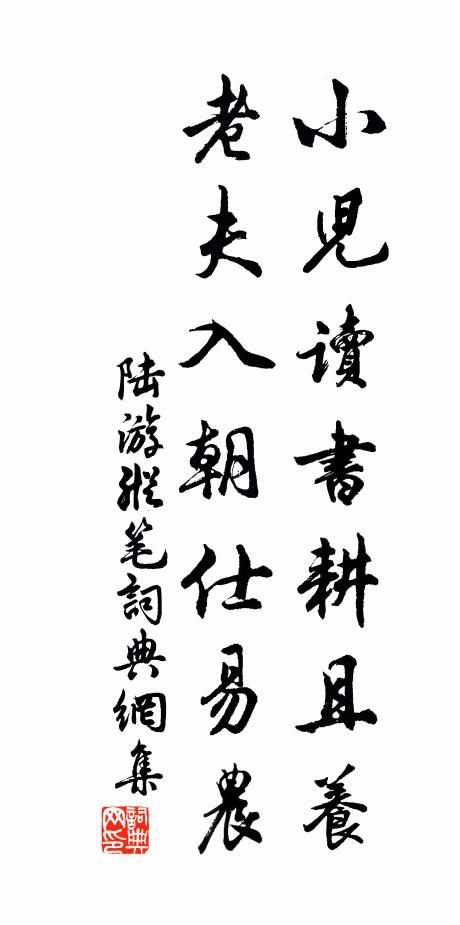 小兒讀書耕且養
老夫入朝仕易農
陸游縱笔詞典網集
詞典网印